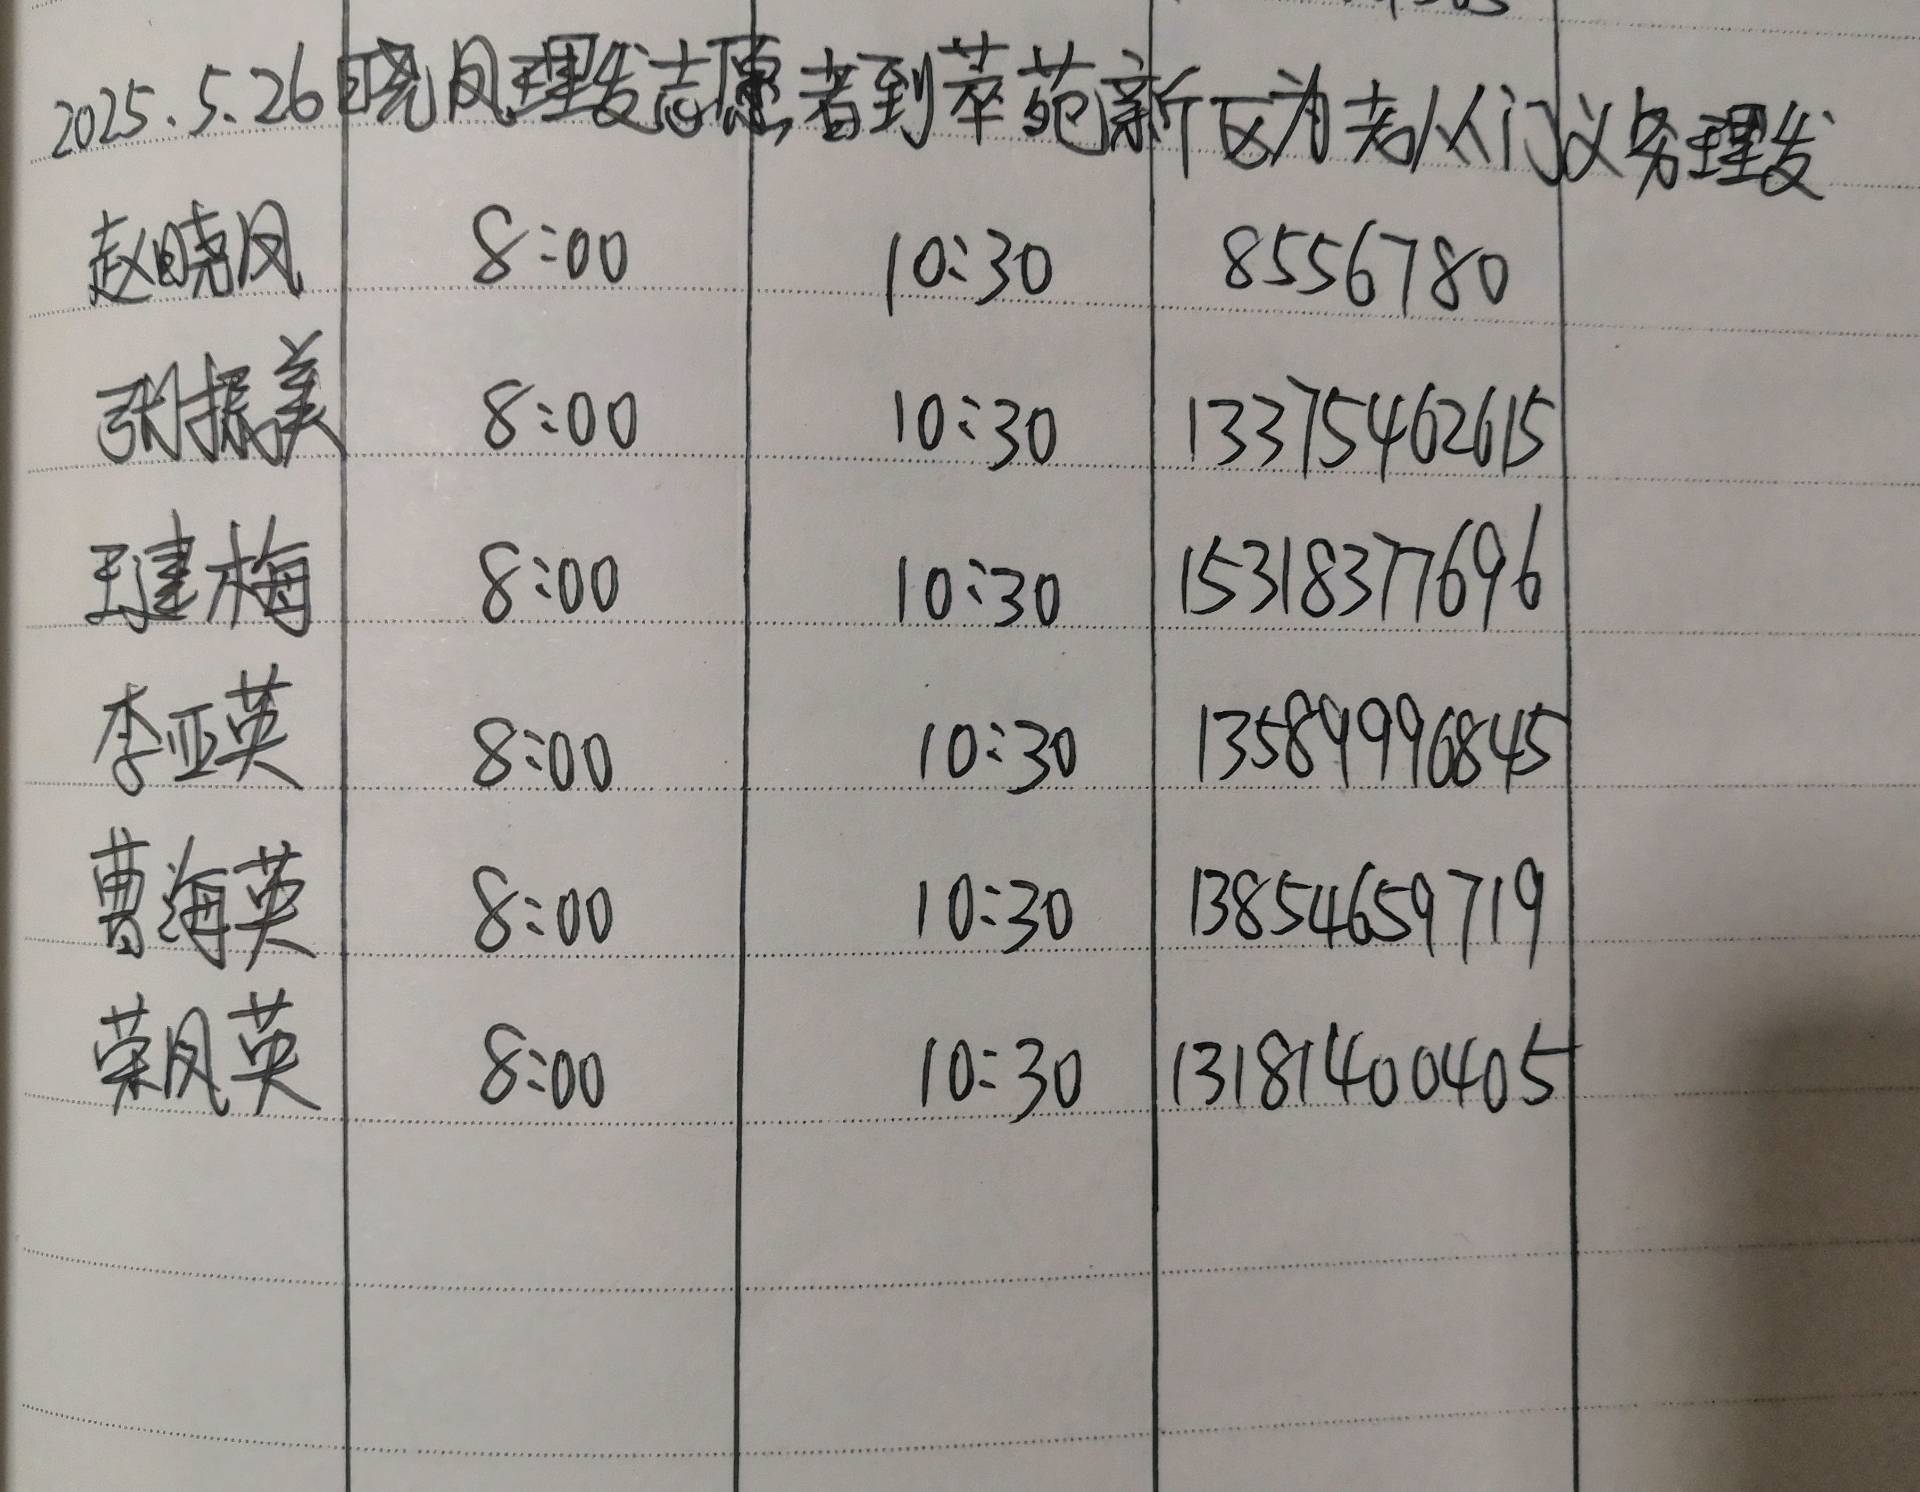 2025.5.26日晓凤理发志愿者到萃苑新区为老人们义务理发
赵晓凤 8:00 10:30 8556780
张振美 8:00 10:30 13375462615
王建梅 8:00 10:30 15318377696
李亚英 8:00 10:30 13589996845
曹海英 8:00 10:30 13854659719
荣凤英 8:00 10:30 13181400405